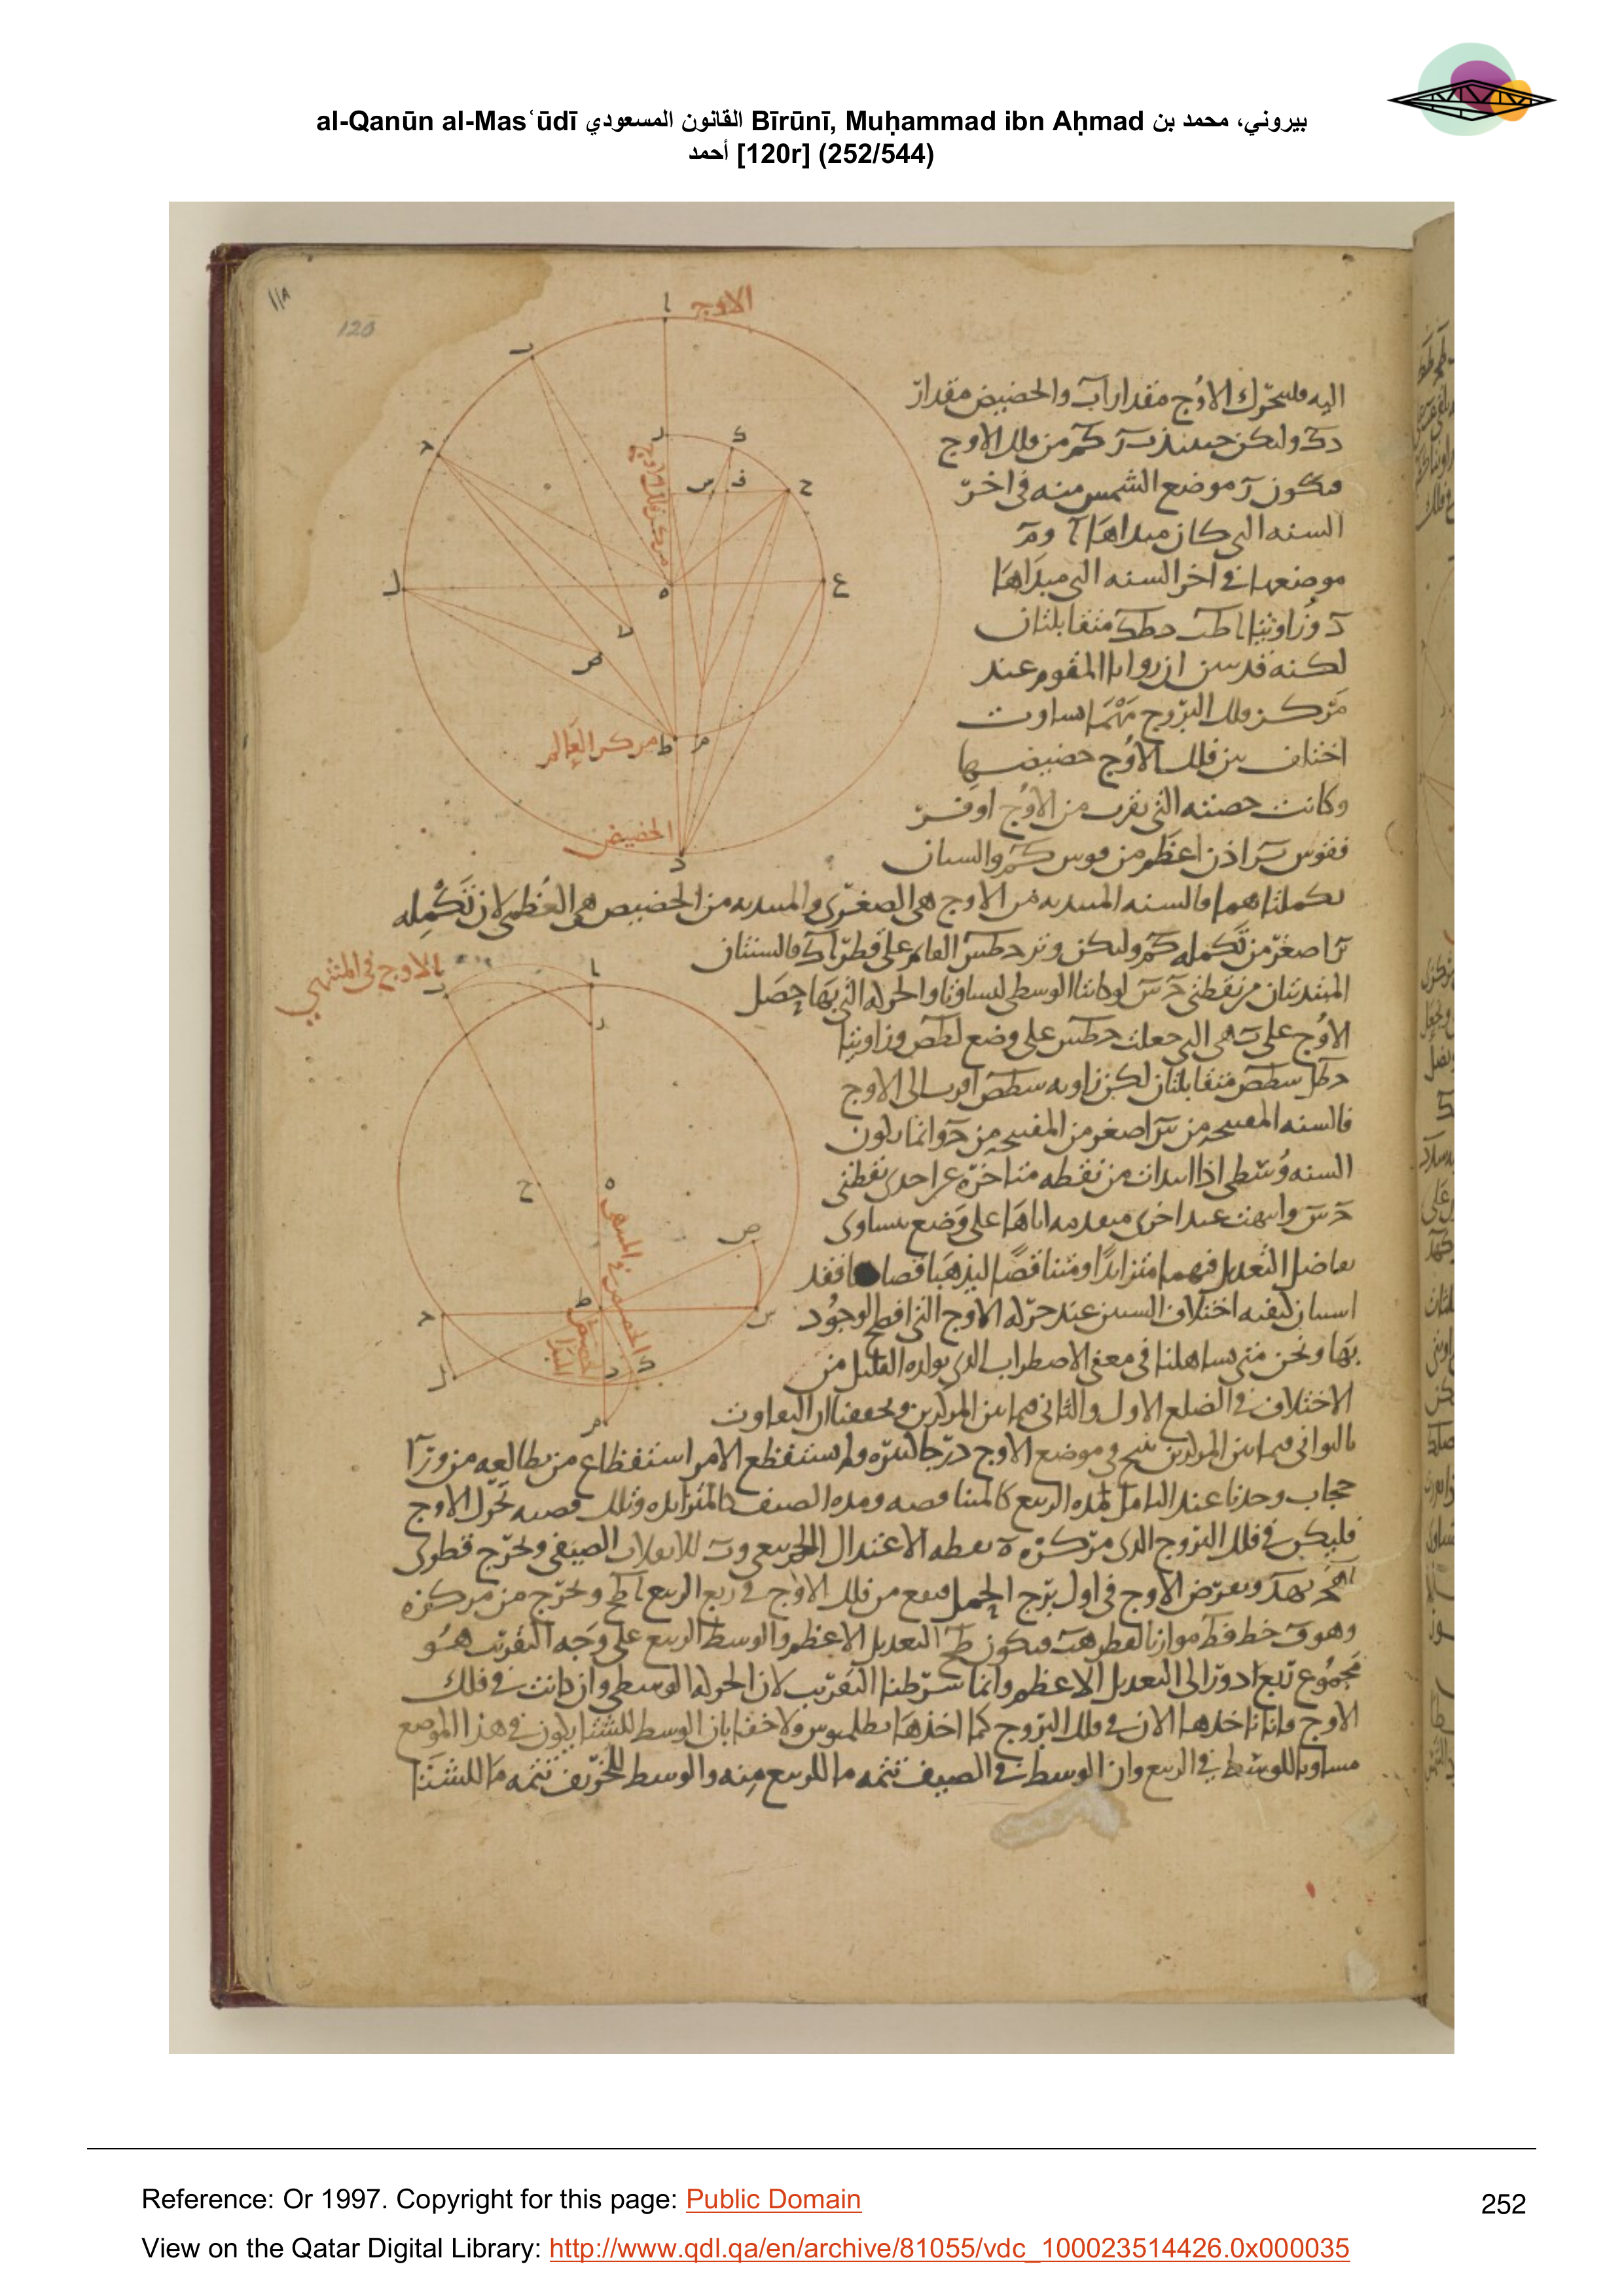 al-Qanūn al-Masʿūdī القانون المسعودي Bīrūnī, Muḥammad ibn Aḥmad بيروني، محمد بن
أحمد [120r] (252/544)
١١٨
120
الاوج
اليه فليتحرك الاوج مقدار اب والحضيض مقدار
دك وليكن حينئذ من فلك الاوج
فيكون ر موضع الشمس منه في اخر
السنه التي كان مبداها ا وم
موضعها في اخر السنه التي مبداها
د وزاويتا اطب دطك متقابلتان
لكنه قد بين ان زوايا المقوم عند
مركز فلك البروج مهما تساوت
اختلف من فلك الاوج حضيضها
وكانت حصته التي تقرب من الاوج اوفر
فقوس اذن اعظم من قوس كم والسنتان
تكملتاهما فالسنه المبتديه من الاوج هي الصغرى والمبتديه من الحضيض هي العظمى لان تكمله
را صغر من تكمله كم وليكن وتر حطس القائم على قطر اد فالسنتان
المبتدئتان من نقطتي لو كانتا الوسطى لتساوتا والحركه التي بها حصل
الاوج على هي التي جعلت حطس على وضع لطص وزاويتا
حطل سطص متقابلتان لكن زاويه سطص اقرب الى الاوج
فالسنه المفتتحه من س اصغر من المفتتحه من ح وانما يكون
السنه وسطى اذا ابتدات من نقطه متاخره عن احدى نقطتي
ح س وانتهت عند اخرى متقدمه اياها على وضع يتساوى
تفاضل التعديل فيهما متزايدا ومتناقصا فقد
استبان كيفيه اختلاف السنين عند حركه الاوج التي افصح الوجود
بها ونحن متى تساهلنا في معنى الاضطراب الذي يولده القليل من
الاختلاف في الضلع الاول والثاني فيما بين المركزين وتحققنا ان التفاوت
بالثواني فيما بين المركزين ينتج في موضع الاوج درجا كثيره ولم نستفظع الامر استفظاع من يطالعه من ورا
حجاب وجدنا عند التامل مده الربيع كالمتناقصه ومده الصيف كالمتزايده وتلك قضيه تحرك الاوج
فليكن في فلك البروج الذي مركزه ه نقطه الاعتدال الربيعي وب للانقلاب الصيفي ونخرج قطري
ونفرض الاوج في اول برج الحمل فيقع من فلك الاوج في ربع الربيع ونخرج من مركزه
وهو خط موازيا لقطر فيكون التعديل الاعظم والوسط الربيع على وجه التقريب هو
مجموع ربع ادور الى التعديل الاعظم وانما شرطنا التقريب لان الحركه الوسطى وان كانت في فلك
الاوج فانا ناخذها الان في فلك البروج كما اخذها بطلميوس ولا خفا بان الوسط للشتا يكون في هذا الموضع
مساويا للوسط في الربيع وان الوسط في الصيف تتمه ما للربيع منه والوسط للخريف تتمه ما للشتا
مركز العالم
الحضيض
الاوج في المنتهى
Reference: Or 1997. Copyright for this page: Public Domain
View on the Qatar Digital Library: http://www.qdl.qa/en/archive/81055/vdc_100023514426.0x000035
252